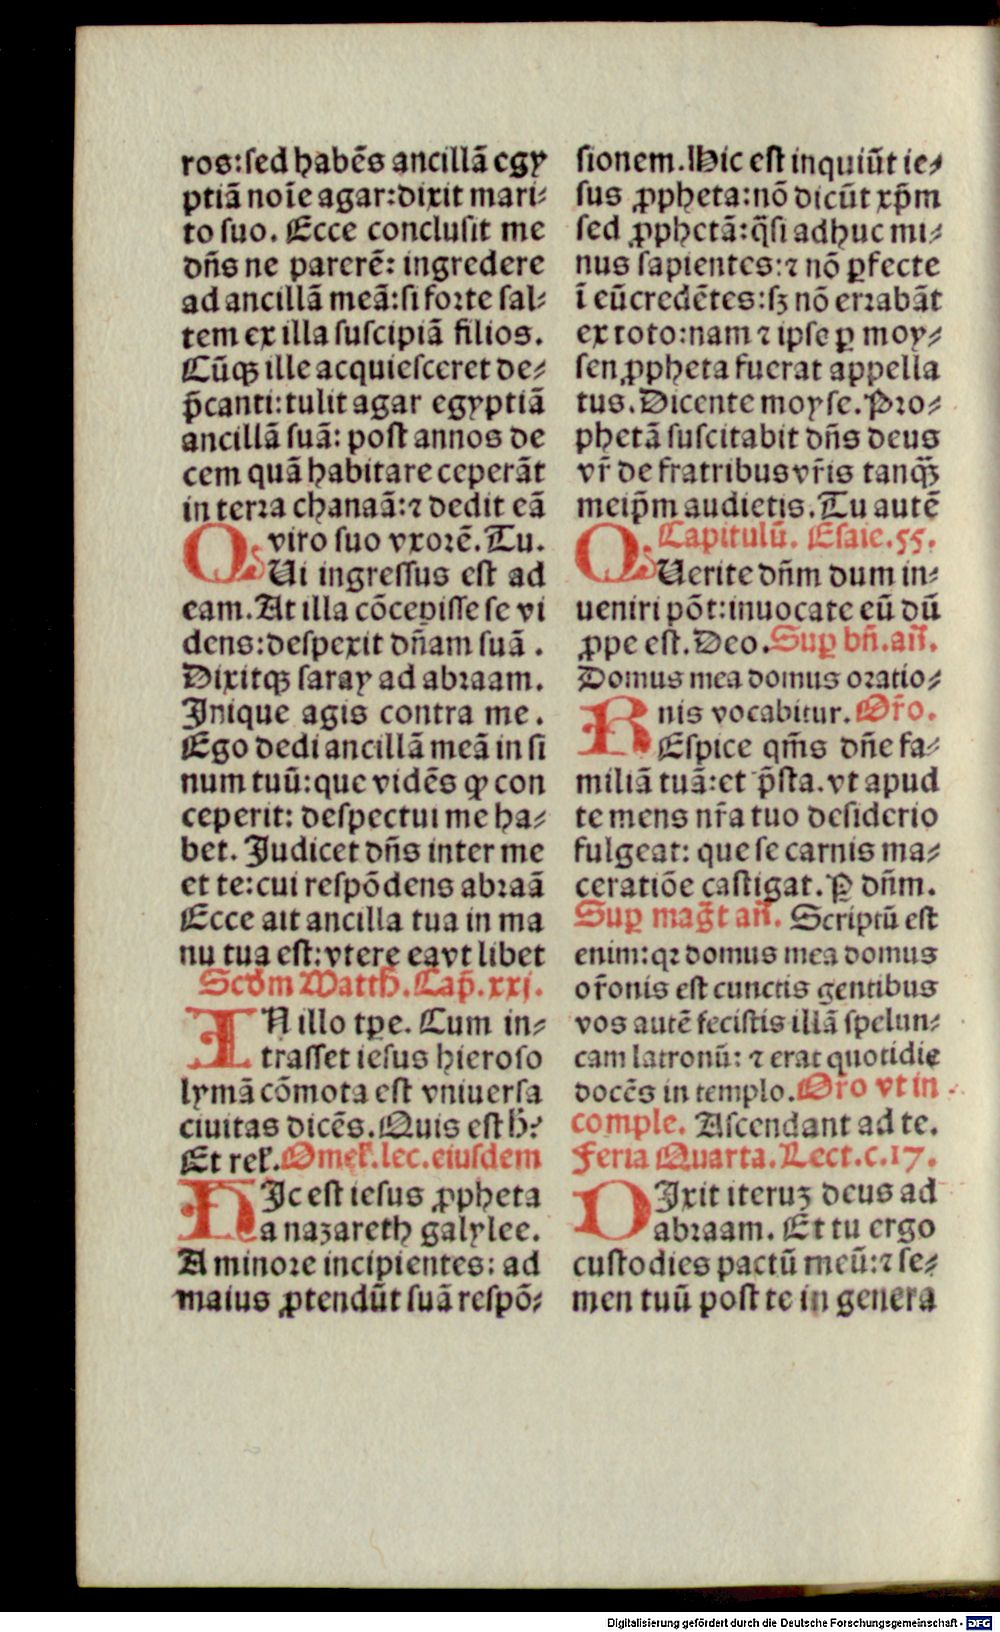 ros:sed habēs ancillā egy
ptiā noīe agar:dixit mari⸗
to suo. Ecce conclusit me
dn̄s ne parerē: ingredere
ad ancillā meā:si forte sal⸗
tem ex illa suscipiā filios.
Cūqꝫ ille acquiesceret de⸗
p̄canti:tulit agar egyptiā
ancillā suā: post annos de
cem quā habitare ceperāt
in terra chanaā:⁊ dedit eā
viro suo vxorē. Tu.
QUi ingressus est ad
eam. At illa cōcepisse se vi
dens:despexit dn̄am suā .
Dixitqꝫ saray ad abraam.
Inique agis contra me .
Ego dedi ancillā meā in si
num tuū:que vidēs ꝙ con
ceperit: despectui me ha⸗
bet. Judicet dn̄s inter me
et te:cui respōdens abraā
Ecce ait ancilla tua in ma
nu tua est:vtere ea vt libet
Scd̓m Matth̓. Cap̄. xxj.
IN illo tp̄e. Cum in⸗
trasset iesus hieroso
lymā cōmota est vniuersa
ciuitas dicēs. Quis est h̓?
Et rel̓. Omel̓. lec. eiusdem
HIc est iesus ꝓpheta
a nazareth galylee.
A minore incipientes: ad
maius ꝓtendūt suā respō⸗
sionem. Hic est inquiūt ie⸗
sus ꝓpheta:nō dicūt xp̄m
sed ꝓphetā:q̄si adhuc mi⸗
nus sapientes:⁊ nō ꝑfecte
ī eū credētes:sꝫ nō errabāt
ex toto:nam ⁊ ipse ꝑ moy⸗
sen ꝓpheta fuerat appella
tus. Dicente moyse. Pro⸗
phetā suscitabit dn̄s deus
vr̄ de fratribus vr̄is tanqꝫ̄
meip̄m audietis. Tu autē
Capitulū. Esaie. 55.
QUerite dn̄m dum in⸗
ueniri pōt:inuocate eū dū
ꝓpe est. Deo. Suꝑ bn̄. an̄.
Domus mea domus oratio⸗
nis vocabitur. Or̄o.
REspice qm̄s dn̄e fa⸗
miliā tuā:et p̄sta. vt apud
te mens nr̄a tuo desiderio
fulgeat: que se carnis ma⸗
ceratiōe castigat. Ꝑ dn̄m.
Suꝑ mag̅t an̄. Scriptū est
enim:qꝛ domus mea domus
or̄onis est cunctis gentibus
vos autē fecistis illā spelun⸗
cam latronū: ⁊ erat quotidie
docēs in templo. Or̄o vt in
comple. Ascendant ad te.
Feria Quarta. Lect. c. 17.
DIxit iteruꝫ deus ad
abraam. Et tu ergo
custodies pactū meū:⁊ se⸗
men tuū post te in genera
Digitalisierung gefördert durch die Deutsche Forschungsgemeinschaft - DFG